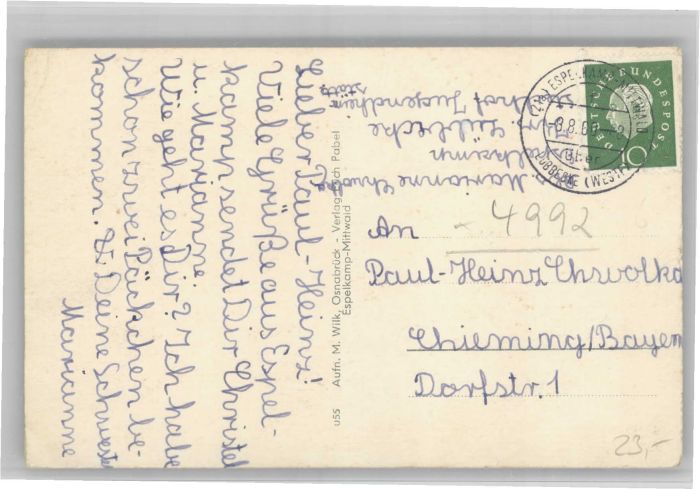 Lieber Paul-Heinz!
Viele Grüße aus Espel-
kamp sendet Dir Christel
u. Marianne.
Wie geht es Dir? Ich habe
schon zwei Päckchen be-
kommen. Deine Schwester
Marianne
u55 Aufn. M. Wilk, Osnabrück - Verlag Erich Pabel
Espelkamp-Mittwald
Marianne Chwolka
Espelkamp
Lübbecke
Jugendheim
ESPELKAMP-MITTWALD
-8.8.60
über
LÜBBECKE (WESTF)
DEUTSCHE BUNDESPOST
10
4992
An
Paul-Heinz Chwolka
Chieming/Bayern
Dorfstr. 1
23,-